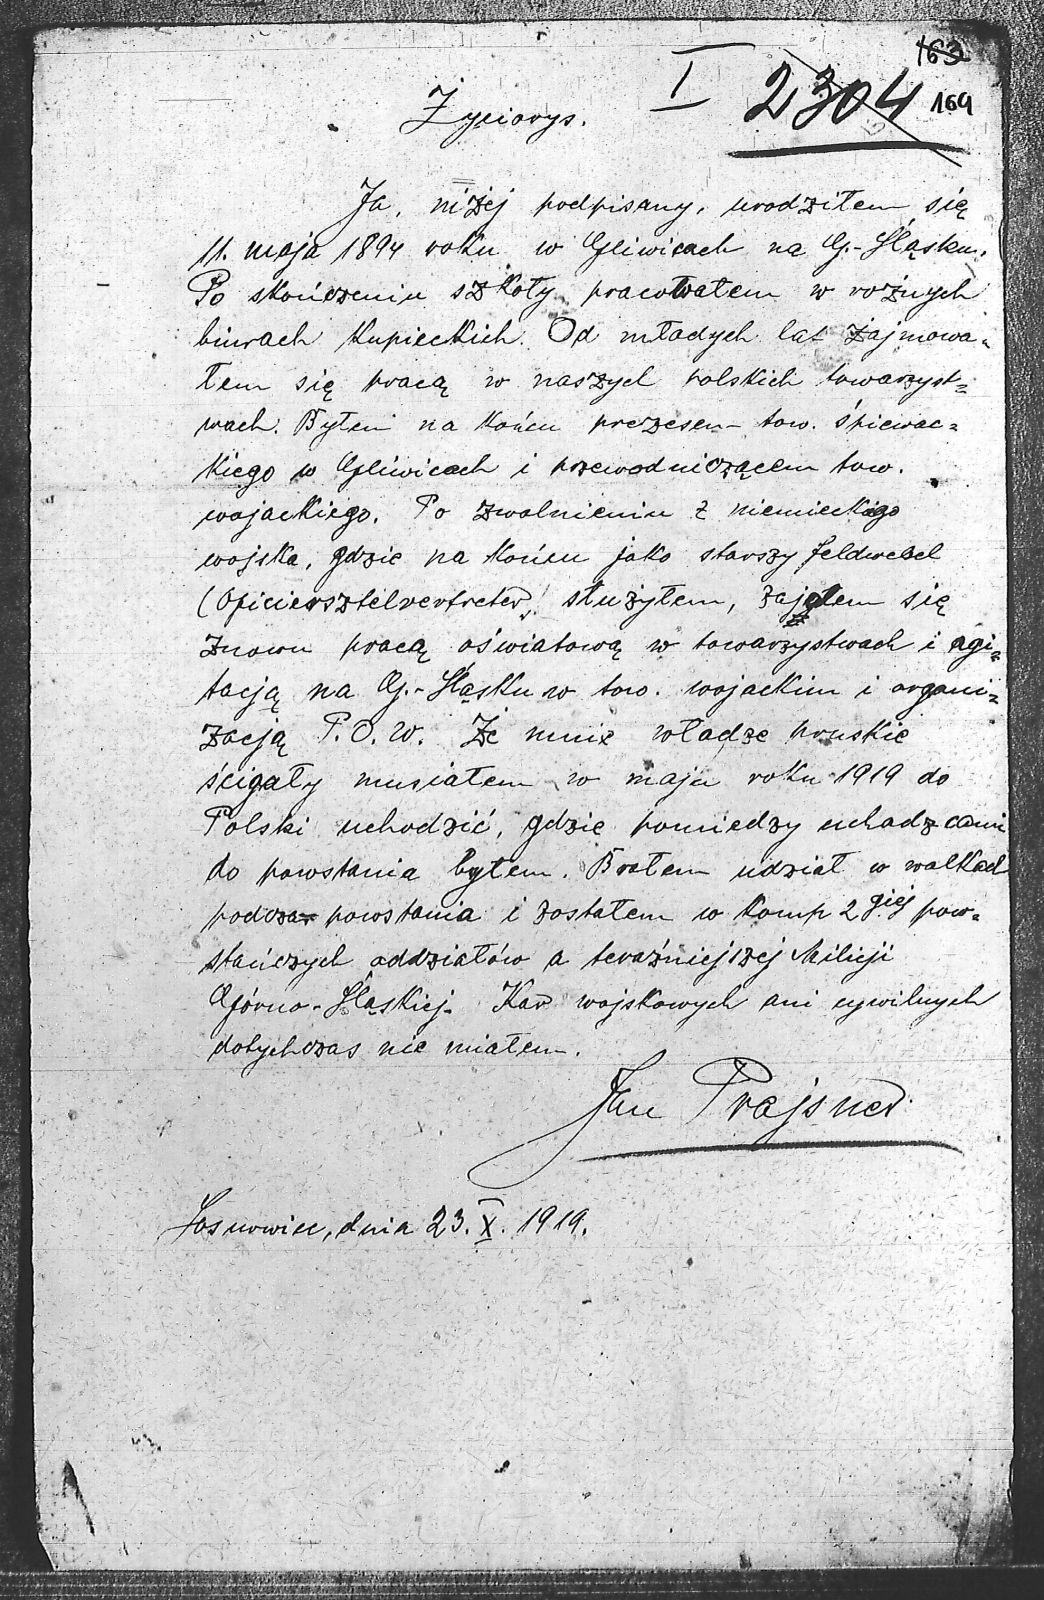 163
I 2304 164
Życiorys.
Ja, niżej podpisany, urodziłem się
11. maja 1894 roku w Gliwicach na G.-Śląsku.
Po skończeniu szkoły pracowałem w rożnych
biurach kupieckich. Od młodych lat zajmowa-
łem się pracą w naszych polskich towarzyst=
wach. Byłem na końcu prezesem tow. śpiewac=
kiego w Gliwicach i przewodniczącem tow.
wojackiego. Po zwolnieniu z niemieckiego
wojska, gdzie na końcu jako starszy feldwebel
(Oficiersztelvertreter) służyłem, zająłem się
znowu pracą oświatową w towarzystwach i agi=
tacją na G.-Śląsku w tow. wojackim i organi=
zacją P.O.W. Że mnie władze pruskie
ścigały musiałem w maju roku 1919 do
Polski uchodzić, gdzie pomiędzy uchadzcami
do powstania byłem. Brałem udział w walkach
podczas powstania i zostałem w komp 2giej pow-
stańczych oddziałów a teraźniejszej Milicji
Górno-Śląskiej. Kar wojskowych ani cywilnych
dotychczas nie miałem.
Jan Prajsner
Sosnowiec, dnia 23. X. 1919.